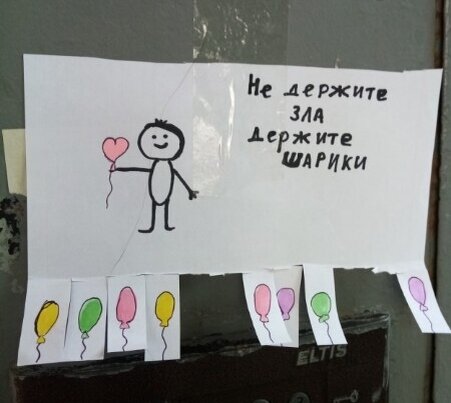 Не держите
зла
держите
шарики
ELTIS